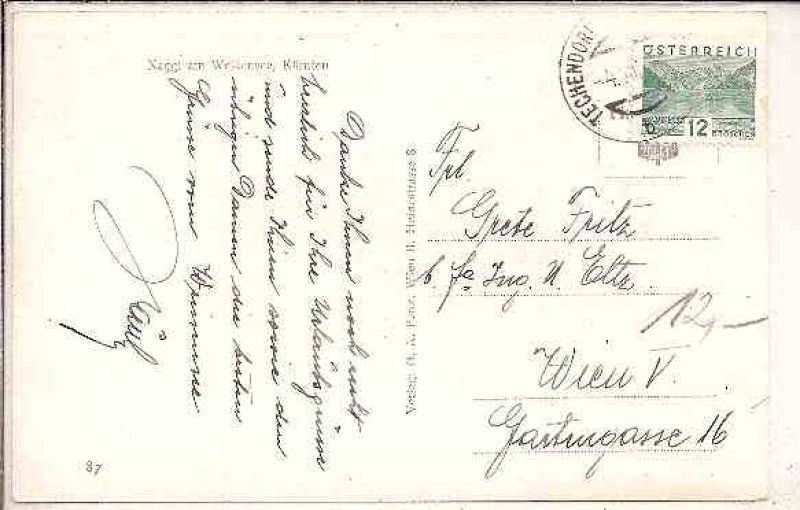 Naggl am Weißensee, Kärnten
Danke Ihnen noch recht
herzlich für Ihre Urlaubsgrüsse
und sende Ihnen sowie den
übrigen Damen die besten
Grüsse vom
87
Verlag: Wien II, Heinestrasse 8
TECHENDORF
b
ÖSTERREICH
12 GROSCHEN
Frl.
Grete Fritz
b. Fa Ing. U. Eltz
12,-
Wien V.
Gartengasse 16